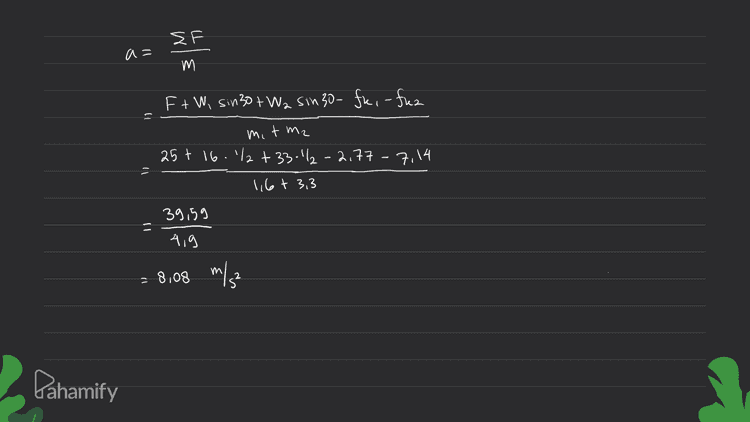 a = ΣF / m
= F + W₁ sin30 + W₂ sin30 - fk₁ - fk₂ / m₁ + m₂
= 25 + 16 . 1/2 + 33 . 1/2 - 2,77 - 7,14 / 1,6 + 3,3
= 39,59 / 4,9
= 8,08 m/s²
Pahamify